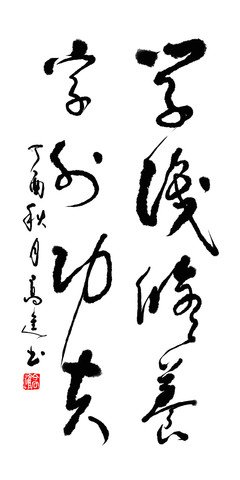 学識修養
字外功夫
丁酉秋月高進书